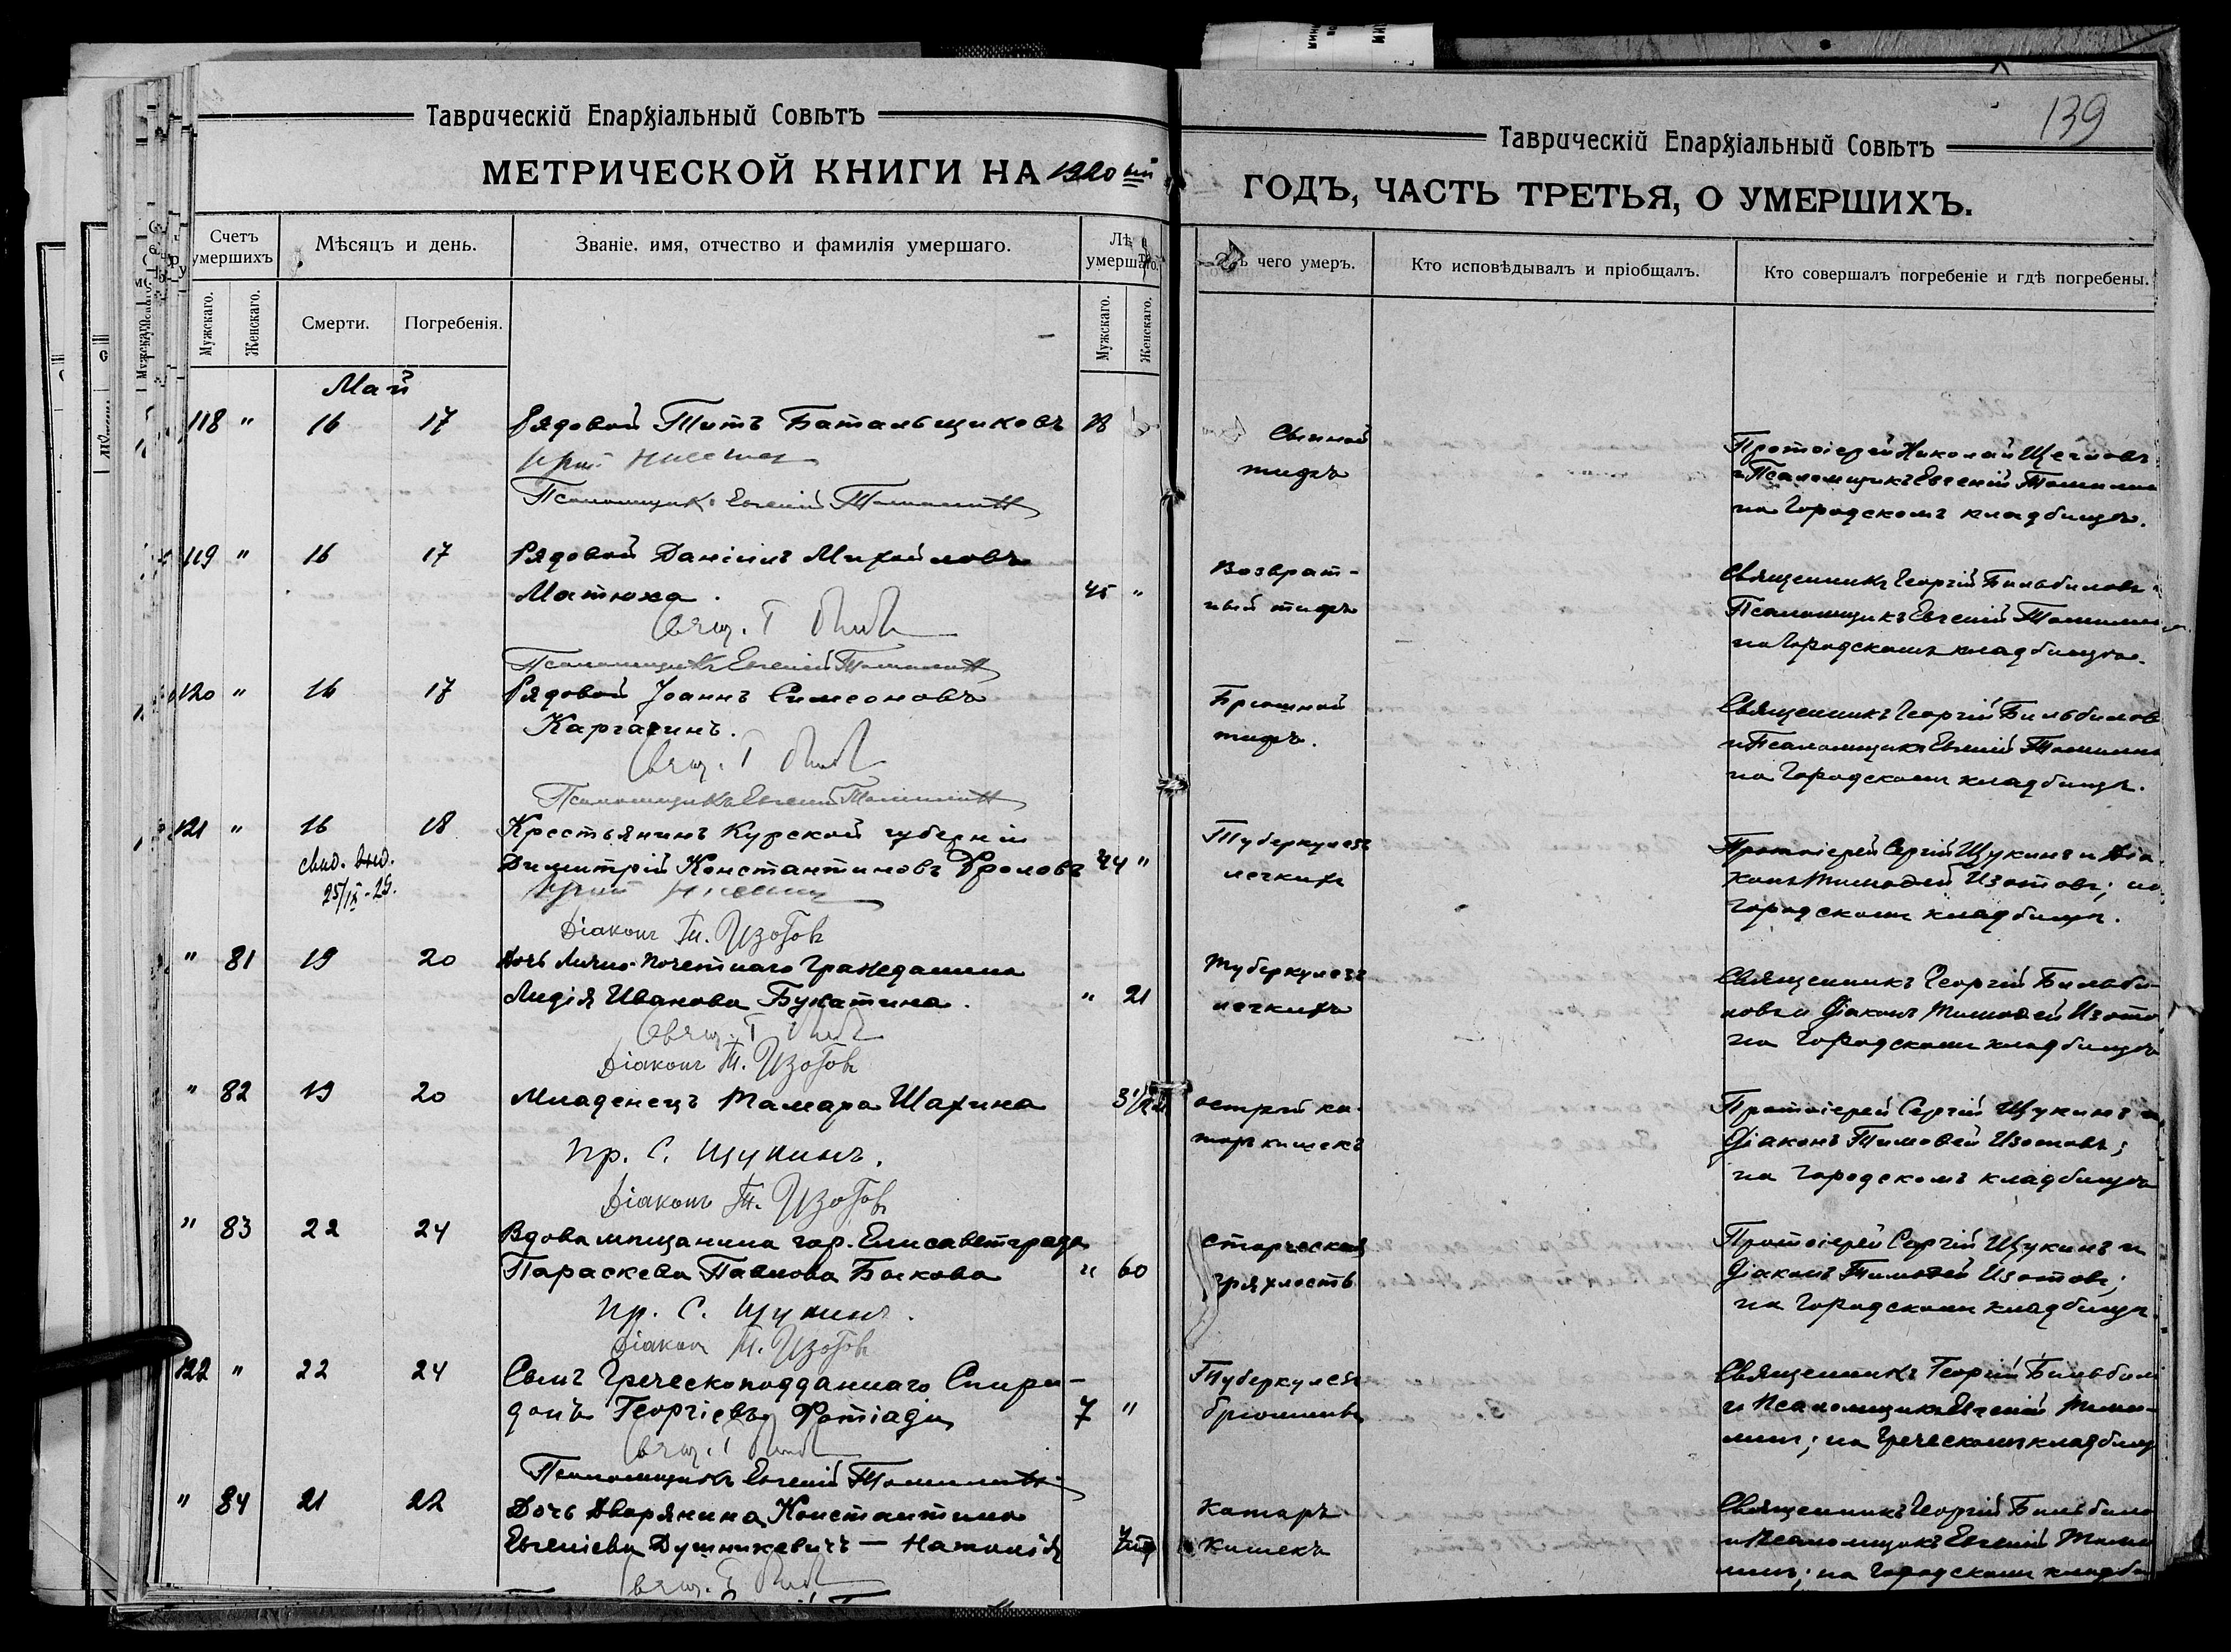 139
Таврическій Епархіальный Совѣтъ
МЕТРИЧЕСКОЙ КНИГИ НА 1920 ый
Таврическій Епархіальный Совѣтъ
ГОДЪ, ЧАСТЬ ТРЕТЬЯ, О УМЕРШИХЪ.
Счетъ умершихъ
Мѣсяцъ и день.
Званіе. имя, отчество и фамилія умершаго.
Лѣ
умершаго.
чего умеръ.
Кто исповѣдывалъ и пріобщалъ.
Кто совершалъ погребеніе и гдѣ погребены.
Мужскаго.
Женскаго.
Смерти.
Погребенія.
Мужскаго.
Женскаго.
Май
118 " 16 17 Рядовой Титъ Батальщиковъ
Псаломщикъ Евгеній
Сыпной
тифъ
Протоіерей Николай
и Псаломщикъ Евгеній
на Городскомъ кладбищѣ.
119 " 16 17 Рядовой Даніилъ Михайловъ
Матюха. 45 "
Свящ. Г
Псаломщикъ Евгеній
Возврат-
ный тифъ
Священникъ Георгій Бильбиловъ
Псаломщикъ Евгеній
на Городскомъ кладбищѣ.
120 " 16 17 Рядовой Іоаннъ Симеоновъ
Свящ. Г
Псаломщикъ Евгеній
Брюшной
тифъ.
Священникъ Георгій Бильбилов
и Псаломщикъ Евгеній
на Городскомъ кладбищѣ.
121 " 16 18 Крестьянинъ Курской губерніи
Димитрій Константиновъ Фроловъ 44 "
25/IX-25.
Діаконъ Т. Изотов
Туберкулезъ
легкихъ
Протоіерей Сергій Щукинъ и Діа-
конъ Тимофей Изотовъ; на
Городскомъ кладбищѣ.
" 81 19 20 Дочь Лично-Почетнаго Гражданина
Лидія Иванова Букатина. " 21
Свящ. Г
Діаконъ Т. Изотов
Туберкулезъ
легкихъ
Священникъ Георгій Бильби-
ловъ и Діаконъ Тимофей Изото
на Городскомъ кладбищѣ
" 82 19 20 Младенецъ Тамара Шахина
Пр. С. Щукинъ.
Діаконъ Т. Изотов
острый ка-
таръ кишекъ
Протоіерей Сергій Щукинъ и
Діаконъ Тимофей Изотовъ;
на Городскомъ кладбищѣ
" 83 22 24 Вдова мѣщанина гор. Елисаветграда
Параскева Павлова Быкова " 60
Пр. С. Щукинъ.
Діаконъ Т. Изотов
старческая
дряхлость
Протоіерей Сергій Щукинъ и
Діаконъ Тимофей Изотовъ;
на Городскомъ кладбищѣ.
122 " 22 24 Сынъ Греческоподданнаго Спири-
донъ Георгіевъ Фотіади 7 "
Свящ. Г
Псаломщикъ Евгеній
Туберкулезъ
брюшины
Священникъ Георгій Бильбил
и Псаломщикъ Евгеній
на Греческомъ кладбищ
" 84 21 22 Дочь Дворянина Константина
Евгеніева Душникевичъ — Наталія
Свящ. Г
Катаръ
Кишекъ
Священникъ Георгій Бильбило
и Псаломщикъ Евгеній
на Городскомъ кладби